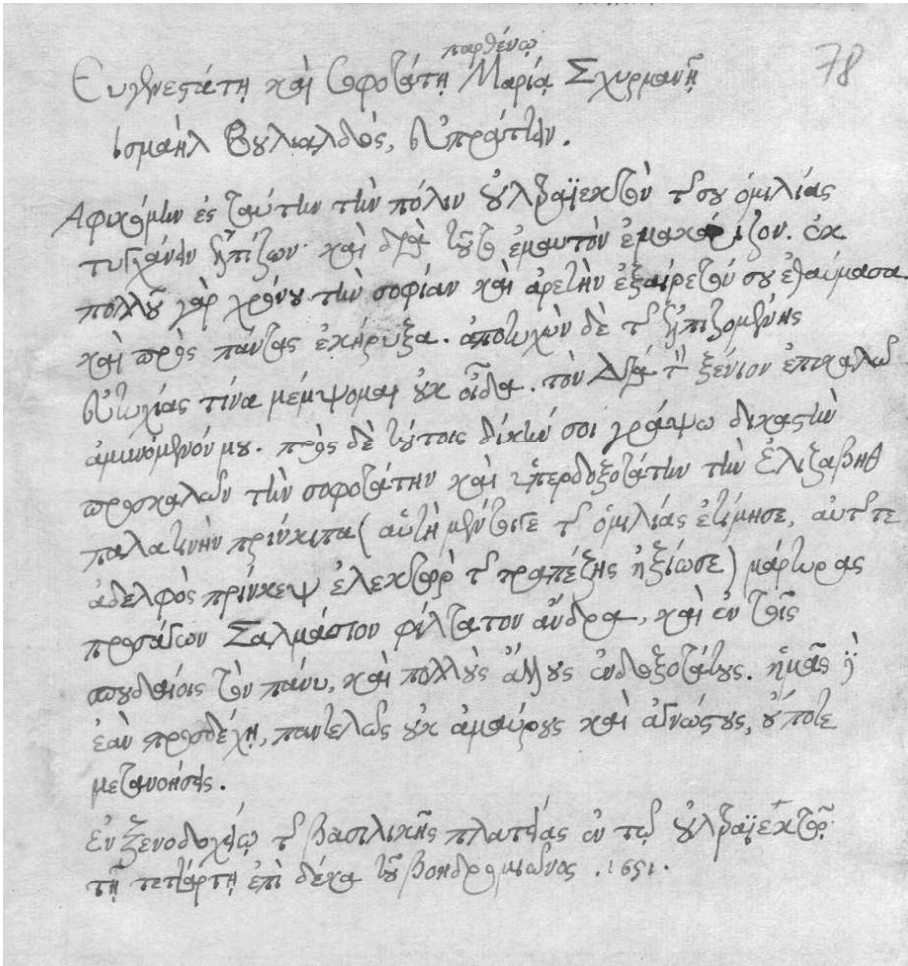 παρθένῳ 78
Εὐγενεστάτῃ καὶ σοφοτάτῃ Μαρίᾳ Σχυρμανῇ
Ισμαὴλ Βουλιαλδὸς, εὖ πράττειν.
Ἀφικόμην ἐς ταύτην τὴν πόλιν Οὐλτραϊεκτὸν τῆς σου ὁμιλίας
τυγχάνειν ἐλπίζων· καὶ διὰ τοῦτο ἐμαυτὸν ἐμακάριζον. ἐκ
πολλοῦ γὰρ χρόνου τὴν σοφίαν καὶ ἀρετὴν ἐξαίρετόν σου ἐθαύμασα
καὶ πρὸς πάντας ἐκήρυξα. ἀποτυχὼν δὲ τῆς ἐλπιζομένης
εὐτυχίας τίνα μέμψομαι οὐκ οἶδα. τὸν Δία τὸν ξένιον ἐπικαλῶ
ἀμυνόμενόν μου. πρὸς δὲ τούτοις δίκην σοι γράψω δικαστὴν
προσκαλῶν τὴν σοφοτάτην καὶ ὑπερδοξοτάτην τὴν Ἐλιζαβὴθ
παλατινὴν πρίνκιπα (αὕτη μέντοιγε τῆς ὁμιλίας ἐτίμησε, αὐτῆς τε
ἀδελφὸς πρίνκεψ ἐλεκτὸρ τῆς τραπέζης ἠξίωσε) μάρτυρας
προσάγων Σαλμάσιον φίλτατον ἄνδρα, καὶ ἐν τοῖς
σπουδαίοις τὸν πάνυ, καὶ πολλοὺς ἄλλους ἐνδοξοτάτους. ἡμᾶς
ἐὰν προσδέχῃ, παντελῶς οὐκ ἀμαύρους καὶ ἀγνώστους, οὔποτε
μετανοήσεις.
Ἐν ξενοδοχείῳ τῆς βασιλικῆς πλατείας ἐν τῷ Οὐλτραϊέκτῳ
τῇ τετάρτῃ ἐπὶ δέκα τοῦ βοηδρομιῶνος. 1651.